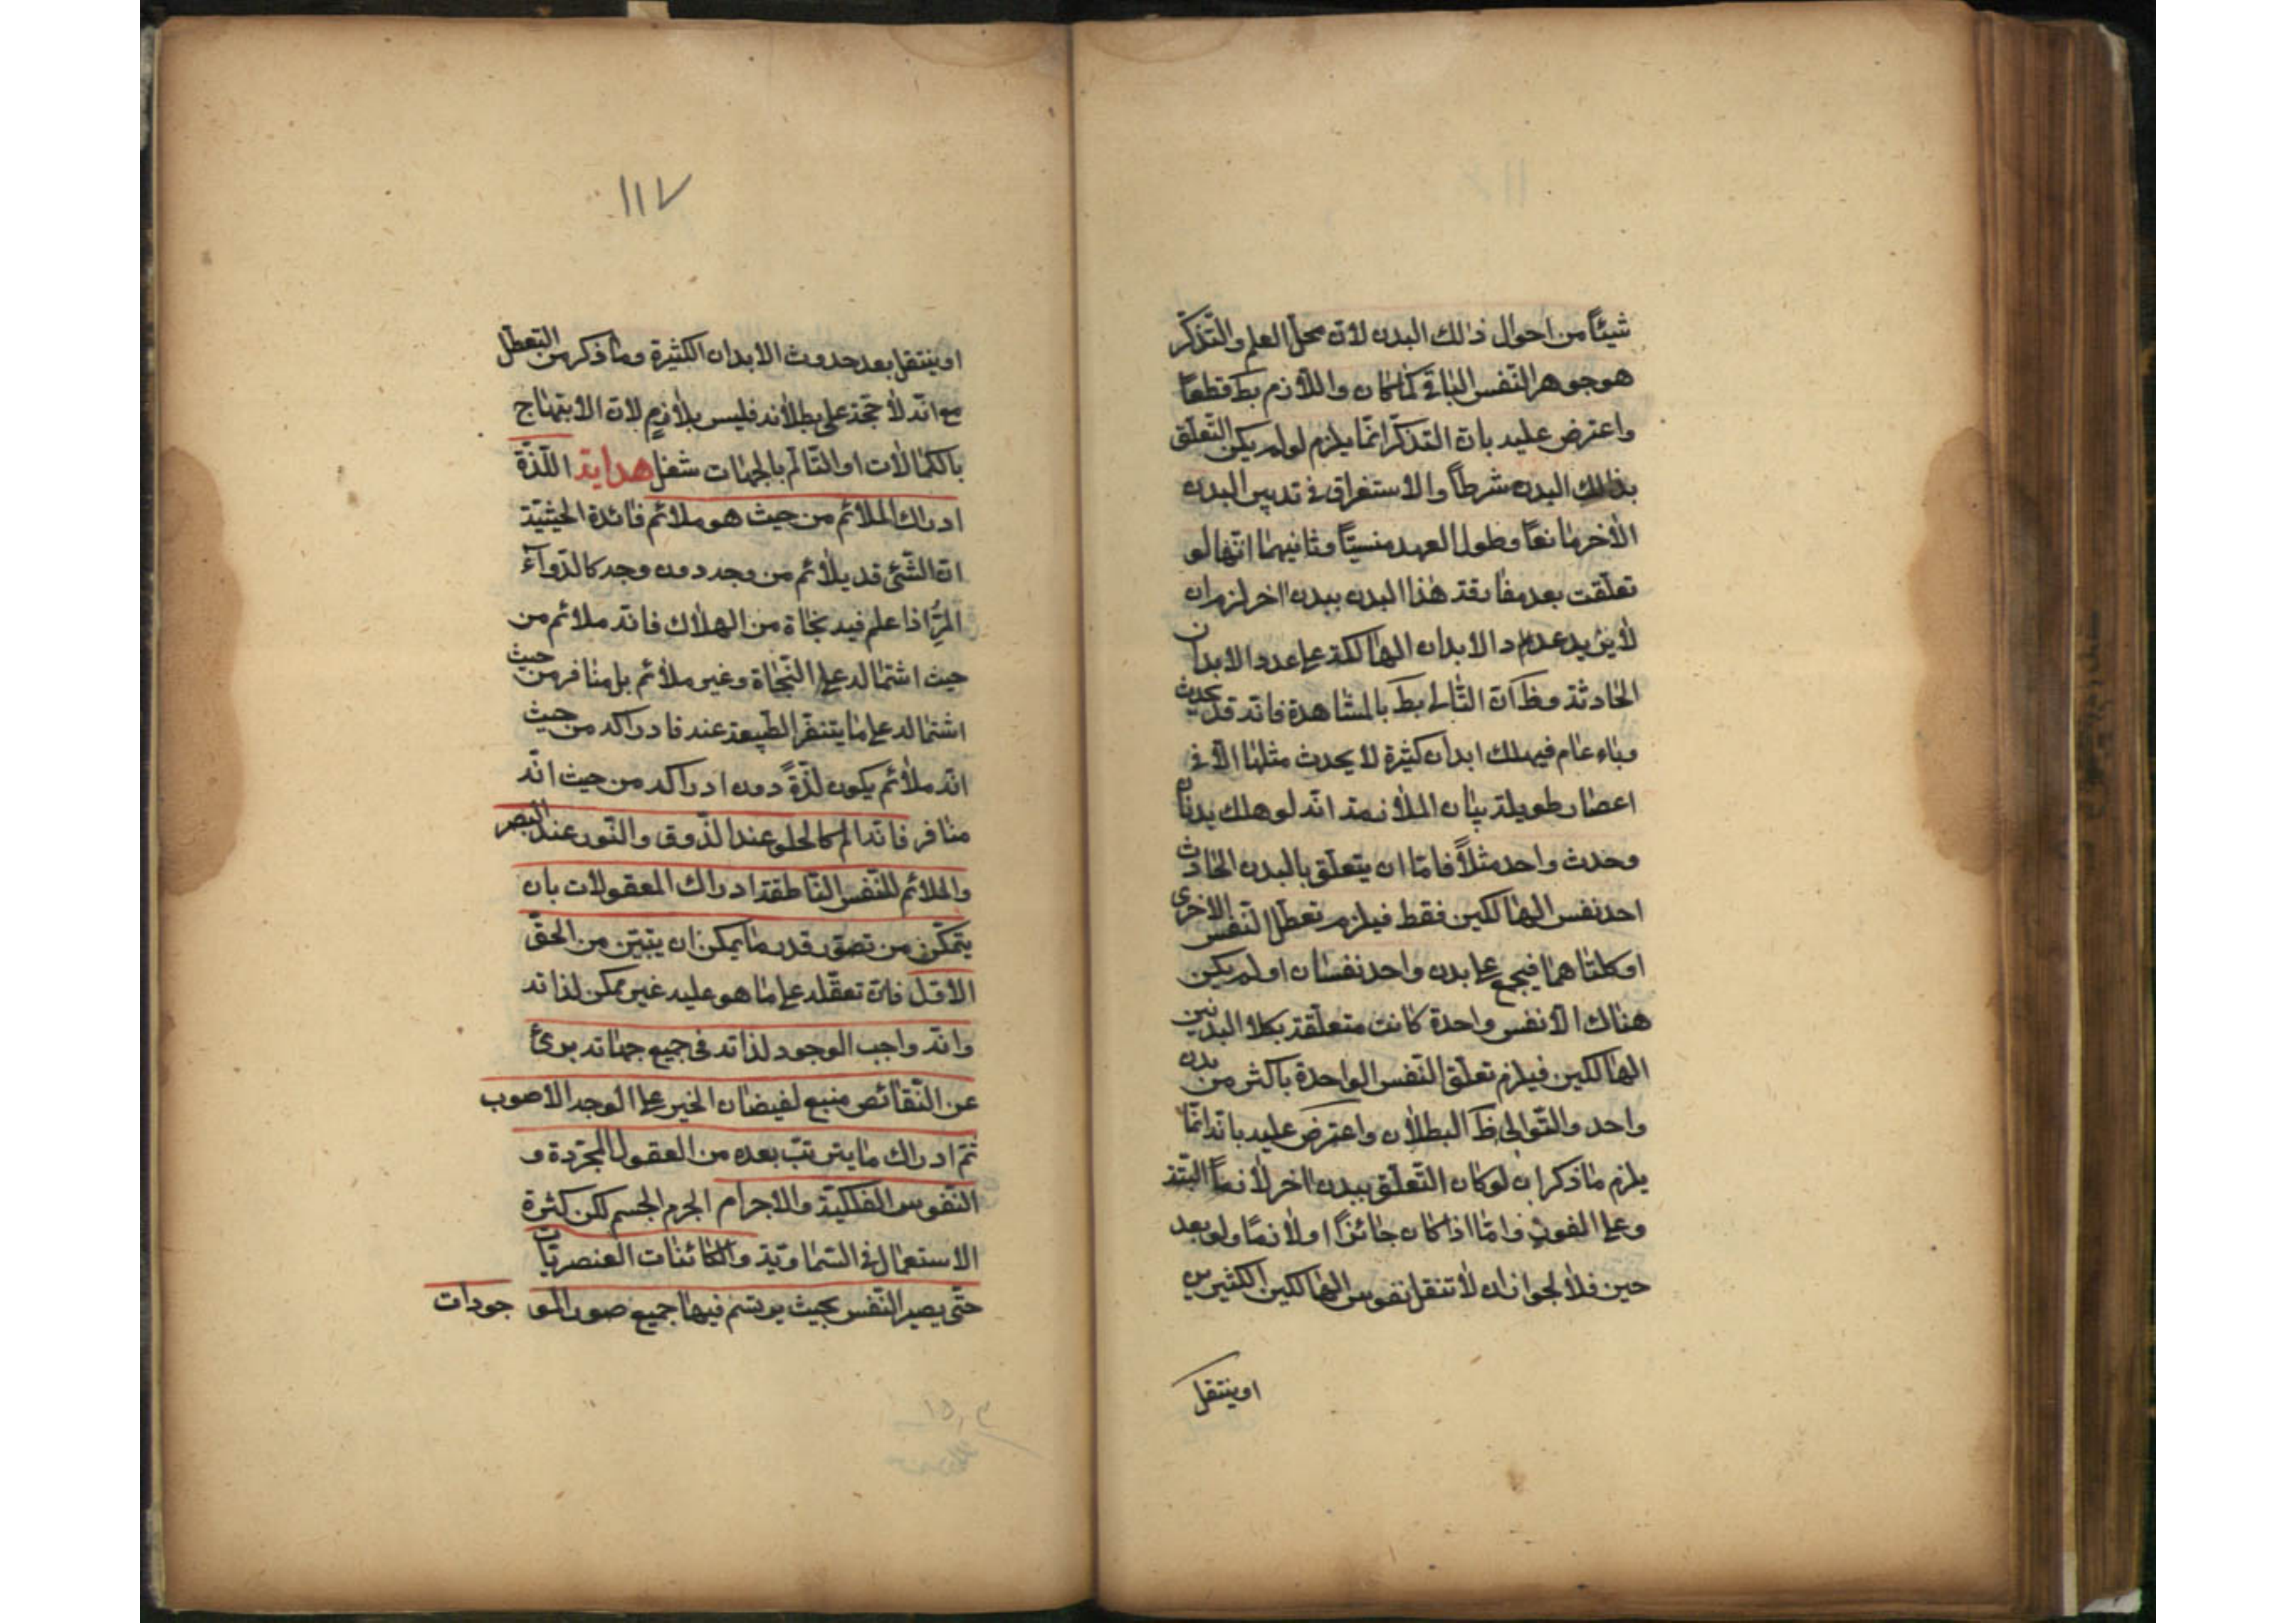 شيئاً من احوال ذلك البدن لان محل العلم والتذكّر
هو جوهر النّفس الباقى كما كان واللازم بط قطعاً
واعترض عليه بان التذكّر انّما يلزم لو لم يكن التعلّق
بذلك البدن شرطاً والاستغراق فى تدبير البدن
الاخر مانعاً وطول العهد منسيّاً وثانيهما انّها لو
تعلّقت بعد مفارقة هذا البدن ببدن اخر لزم ان
لا يزيد عدد الابدان الهالكة على عدد الابدان
الحادثة وظ ان التّالى بط بالمشاهدة فانّه قد يحدث
وباء عام فيهلك ابدان كثيرة لا يحدث مثلها الّا فى
اعصار طويلة بيان الملازمة انّه لو هلك بدنان
وحدث واحد مثلاً فامّا ان يتعلّق بالبدن الحادث
احد نفس الهالكين فقط فيلزم تعطّل النّفس الاخرى
او كلتاهما فيجمع على بدن واحد نفسان او لم يكن
هناك الّا نفس واحدة كانت متعلّقة بكلا البدنين
الهالكين فيلزم تعلّق النّفس الواحدة باكثر من بدن
واحد والتّوالى ظ البطلان واعترض عليه بانّه انّما
يلزم ما ذكر ان لو كان التّعلّق ببدن اخر لازماً البتّة
وعلى الفور وامّا اذا كان جائزاً او لازماً ولو بعد
حين فلا لجواز ان لا تنقل نفوس الهالكين الكثيرين
او ينتقل
١١٧
او ينتقل بعد حدوث الابدان الكثيرة وما ذكر من التعطّل
مع انّه لا حجّة على بطلانه فليس بلازم لان الابتهاج
بالكمالات او التّألّم بالجهات شغل هداية اللّذّة
ادراك الملائم من حيث هو ملائم فائدة الحيثيّة
ان الشّئ قد يلائم من وجه دون وجه كالدّواء
المرّ اذا علم فيه نجاة من الهلاك فانّه ملائم من
حيث اشتماله على النّجاة وغير ملائم بل منافر من حيث
اشتماله على ما يتنفّر الطّبيعة عنه فادراكه من حيث
انّه ملائم يكون لذّةً دون ادراكه من حيث انّه
منافر فانّه الم كالحلو عند الذّوق والنّور عند البصر
والملائم للنّفس النّاطقة ادراك المعقولات بان
يتمكّن من تصوّر قدر ما يمكن ان يتبيّن من الحقّ
الاوّل فان تعقّله على ما هو عليه غير ممكن لذاته
وانّه واجب الوجود لذاته فى جميع جهاته برئ
عن النّقائص منبع لفيضان الخير على الوجه الاصوب
ثمّ ادراك ما يترتّب بعده من العقول المجرّدة و
النّفوس الفلكيّة والاجرام الجرم الجسم لكن كثرة
الاستعمال فى السّماويّة والكائنات العنصريّات
حتّى يصير النّفس بحيث يرتسم فيها جميع صور الموجودات